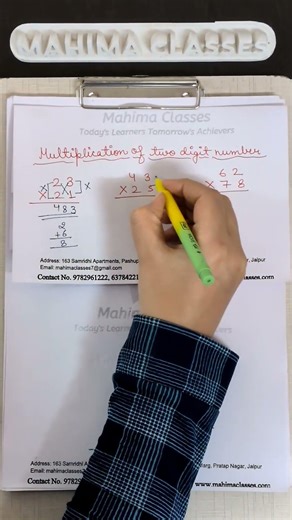 MAHIMA CLASSES
Mahima Classes
Today's Learners Tomorrow's Achievers
Multiplication of two digit number
× 2 3 ×
× 2 1
4 8 3
2
+6
8
4 3
× 2 5
6 2
× 7 8
Address: 163 Samridhi Apartments, Pashup Jaipur
Email: mahimaclasses7@gmail.com
Contact No. 9782961222, 637284 www.mahimaclasses.com
Mahima
Today's Learners Tomorrow's Achievers
Address: 163 Samridhi Apartments, Pratap Nagar, Jaipur
Email: mahimaclasses
Contact No. 9782 www.mahimaclasses.com